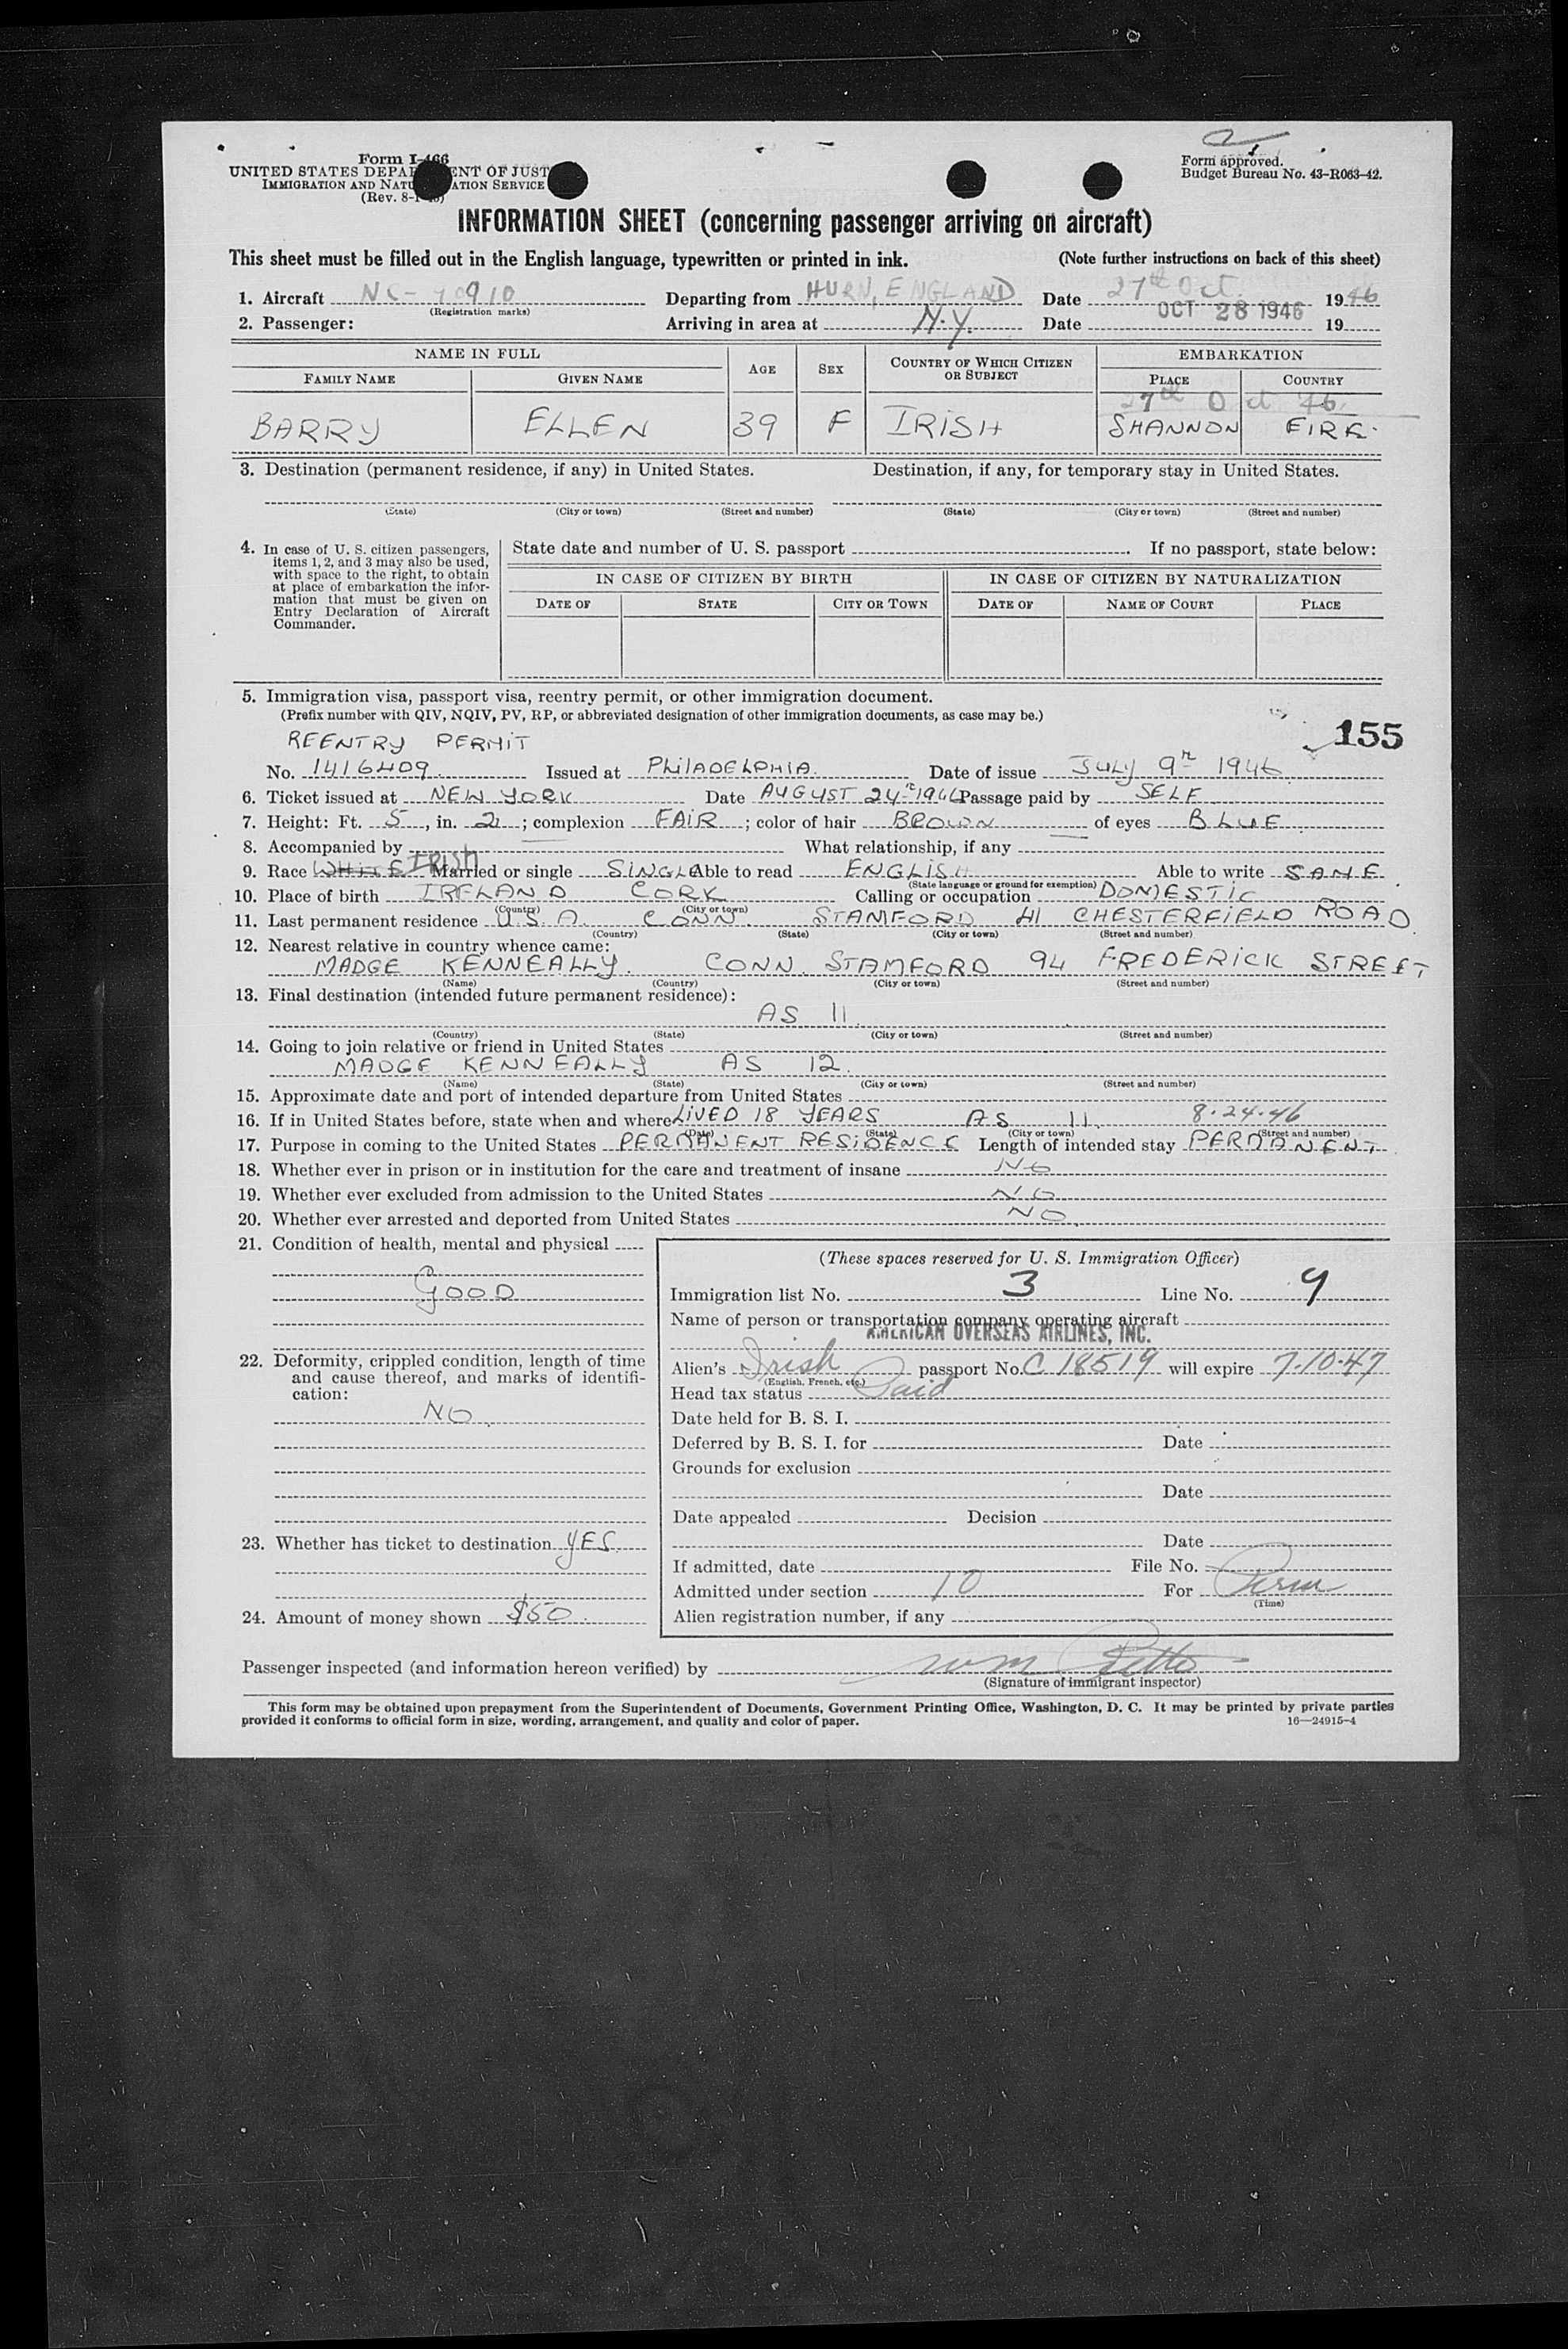 Form I-466
UNITED STATES DEPA ENT OF JUST
IMMIGRATION AND NATU ATION SERVICE
(Rev. 8-1-
Form approved.
Budget Bureau No. 43-R063-42.
INFORMATION SHEET (concerning passenger arriving on aircraft)
This sheet must be filled out in the English language, typewritten or printed in ink. (Note further instructions on back of this sheet)
1. Aircraft NC-90910 Departing from HURN, ENGLAND Date 27th Oct. 1946
(Registration marks)
2. Passenger: Arriving in area at N.Y. Date OCT 28 1946 19
NAME IN FULL AGE SEX COUNTRY OF WHICH CITIZEN OR SUBJECT EMBARKATION
FAMILY NAME GIVEN NAME PLACE COUNTRY
27th Oct 46
BARRY ELLEN 39 F IRISH SHANNON EIRE.
3. Destination (permanent residence, if any) in United States. Destination, if any, for temporary stay in United States.
(State) (City or town) (Street and number) (State) (City or town) (Street and number)
4. In case of U. S. citizen passengers, items 1, 2, and 3 may also be used, with space to the right, to obtain at place of embarkation the information that must be given on Entry Declaration of Aircraft Commander.
State date and number of U. S. passport . If no passport, state below:
IN CASE OF CITIZEN BY BIRTH IN CASE OF CITIZEN BY NATURALIZATION
DATE OF STATE CITY OR TOWN DATE OF NAME OF COURT PLACE
5. Immigration visa, passport visa, reentry permit, or other immigration document.
(Prefix number with QIV, NQIV, PV, RP, or abbreviated designation of other immigration documents, as case may be.)
155
REENTRY PERMIT
No. 1416409. Issued at PHILADELPHIA. Date of issue JULY 9th 1946.
6. Ticket issued at NEW YORK Date AUGUST 24th 1946 Passage paid by SELF
7. Height: Ft. 5, in. 2; complexion FAIR; color of hair BROWN of eyes BLUE.
8. Accompanied by What relationship, if any
9. Race WHITE IRISH Married or single SINGLE Able to read ENGLISH Able to write SAME
(State language or ground for exemption)
10. Place of birth IRELAND CORK Calling or occupation DOMESTIC
(Country) (City or town)
11. Last permanent residence U.S.A. CONN. STAMFORD 41 CHESTERFIELD ROAD.
(Country) (State) (City or town) (Street and number)
12. Nearest relative in country whence came:
MADGE KENNEALLY. CONN. STAMFORD 94 FREDERICK STREET
(Name) (Country) (City or town) (Street and number)
13. Final destination (intended future permanent residence):
AS 11.
(Country) (State) (City or town) (Street and number)
14. Going to join relative or friend in United States
MADGE KENNEALLY AS 12.
(Name) (State) (City or town) (Street and number)
15. Approximate date and port of intended departure from United States
16. If in United States before, state when and where LIVED 18 YEARS AS 11. 8-24-46
(Date) (State) (City or town) (Street and number)
17. Purpose in coming to the United States PERMANENT RESIDENCE Length of intended stay PERMANENT
18. Whether ever in prison or in institution for the care and treatment of insane NO
19. Whether ever excluded from admission to the United States NO
20. Whether ever arrested and deported from United States NO.
21. Condition of health, mental and physical
GOOD
22. Deformity, crippled condition, length of time and cause thereof, and marks of identification:
NO.
23. Whether has ticket to destination YES.
24. Amount of money shown $50.
(These spaces reserved for U. S. Immigration Officer)
Immigration list No. 3 Line No. 9
Name of person or transportation company operating aircraft
AMERICAN OVERSEAS AIRLINES, INC.
Alien's Irish passport No. C 18519 will expire 7-10-47
(English, French, etc.)
Head tax status Paid
Date held for B. S. I.
Deferred by B. S. I. for Date
Grounds for exclusion
Date
Date appealed Decision
Date
If admitted, date File No.
Admitted under section 10 For Perm
(Time)
Alien registration number, if any
Passenger inspected (and information hereon verified) by
(Signature of immigrant inspector)
This form may be obtained upon prepayment from the Superintendent of Documents, Government Printing Office, Washington, D. C. It may be printed by private parties
provided it conforms to official form in size, wording, arrangement, and quality and color of paper. 16—24915-4